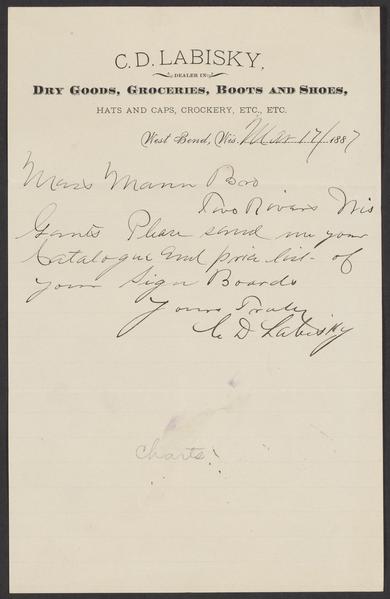 C. D. LABISKY,
DEALER IN
DRY GOODS, GROCERIES, BOOTS AND SHOES,
HATS AND CAPS, CROCKERY, ETC., ETC.
West Bend, Wis. Mar 17/ 1887
Mess Mann Bro
Two Rivers Wis
Gents Please send me your
Catalogue and price list of
your Sign Boards
Yours Truly
C D Labisky
Charts